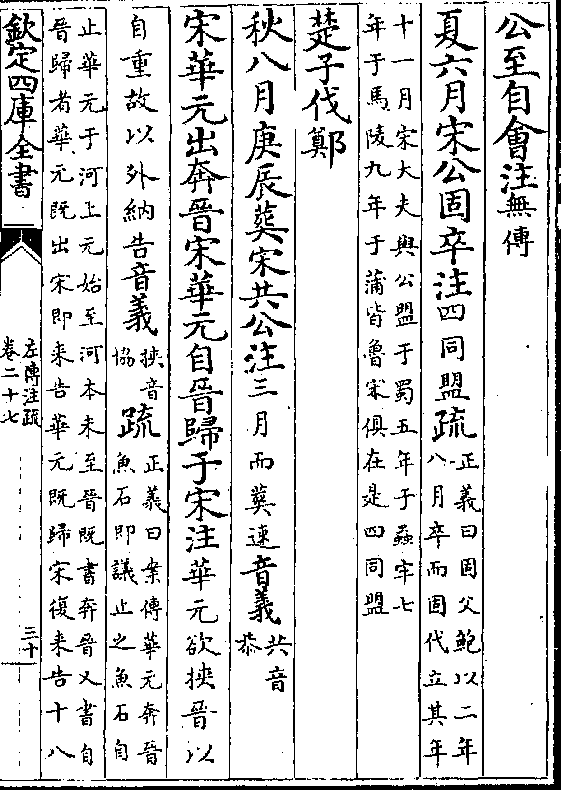 公至自會注無傳
夏六月宋公固卒注四同盟疏正義曰固父鮑以二年
八月卒而固代立其年
十一月宋大夫與公盟于蜀五年于蟲牢七
年于馬陵九年于蒲皆魯宋俱在是四同盟
楚子伐鄭
秋八月庚辰葬宋共公注三月而葬速音義共音
恭
宋華元出奔晉宋華元自晉歸于宋注華元欲挾晉以
自重故以外納告音義挾音
協疏正義曰案傳華元奔晉
魚石即議止之魚石自
止華元于河上元始至河本未至晉既書奔晉又書自
晉歸者華元既出宋即来告華元既歸宋復来告十八
欽定四庫全書
左傳注疏
卷二十七
三十